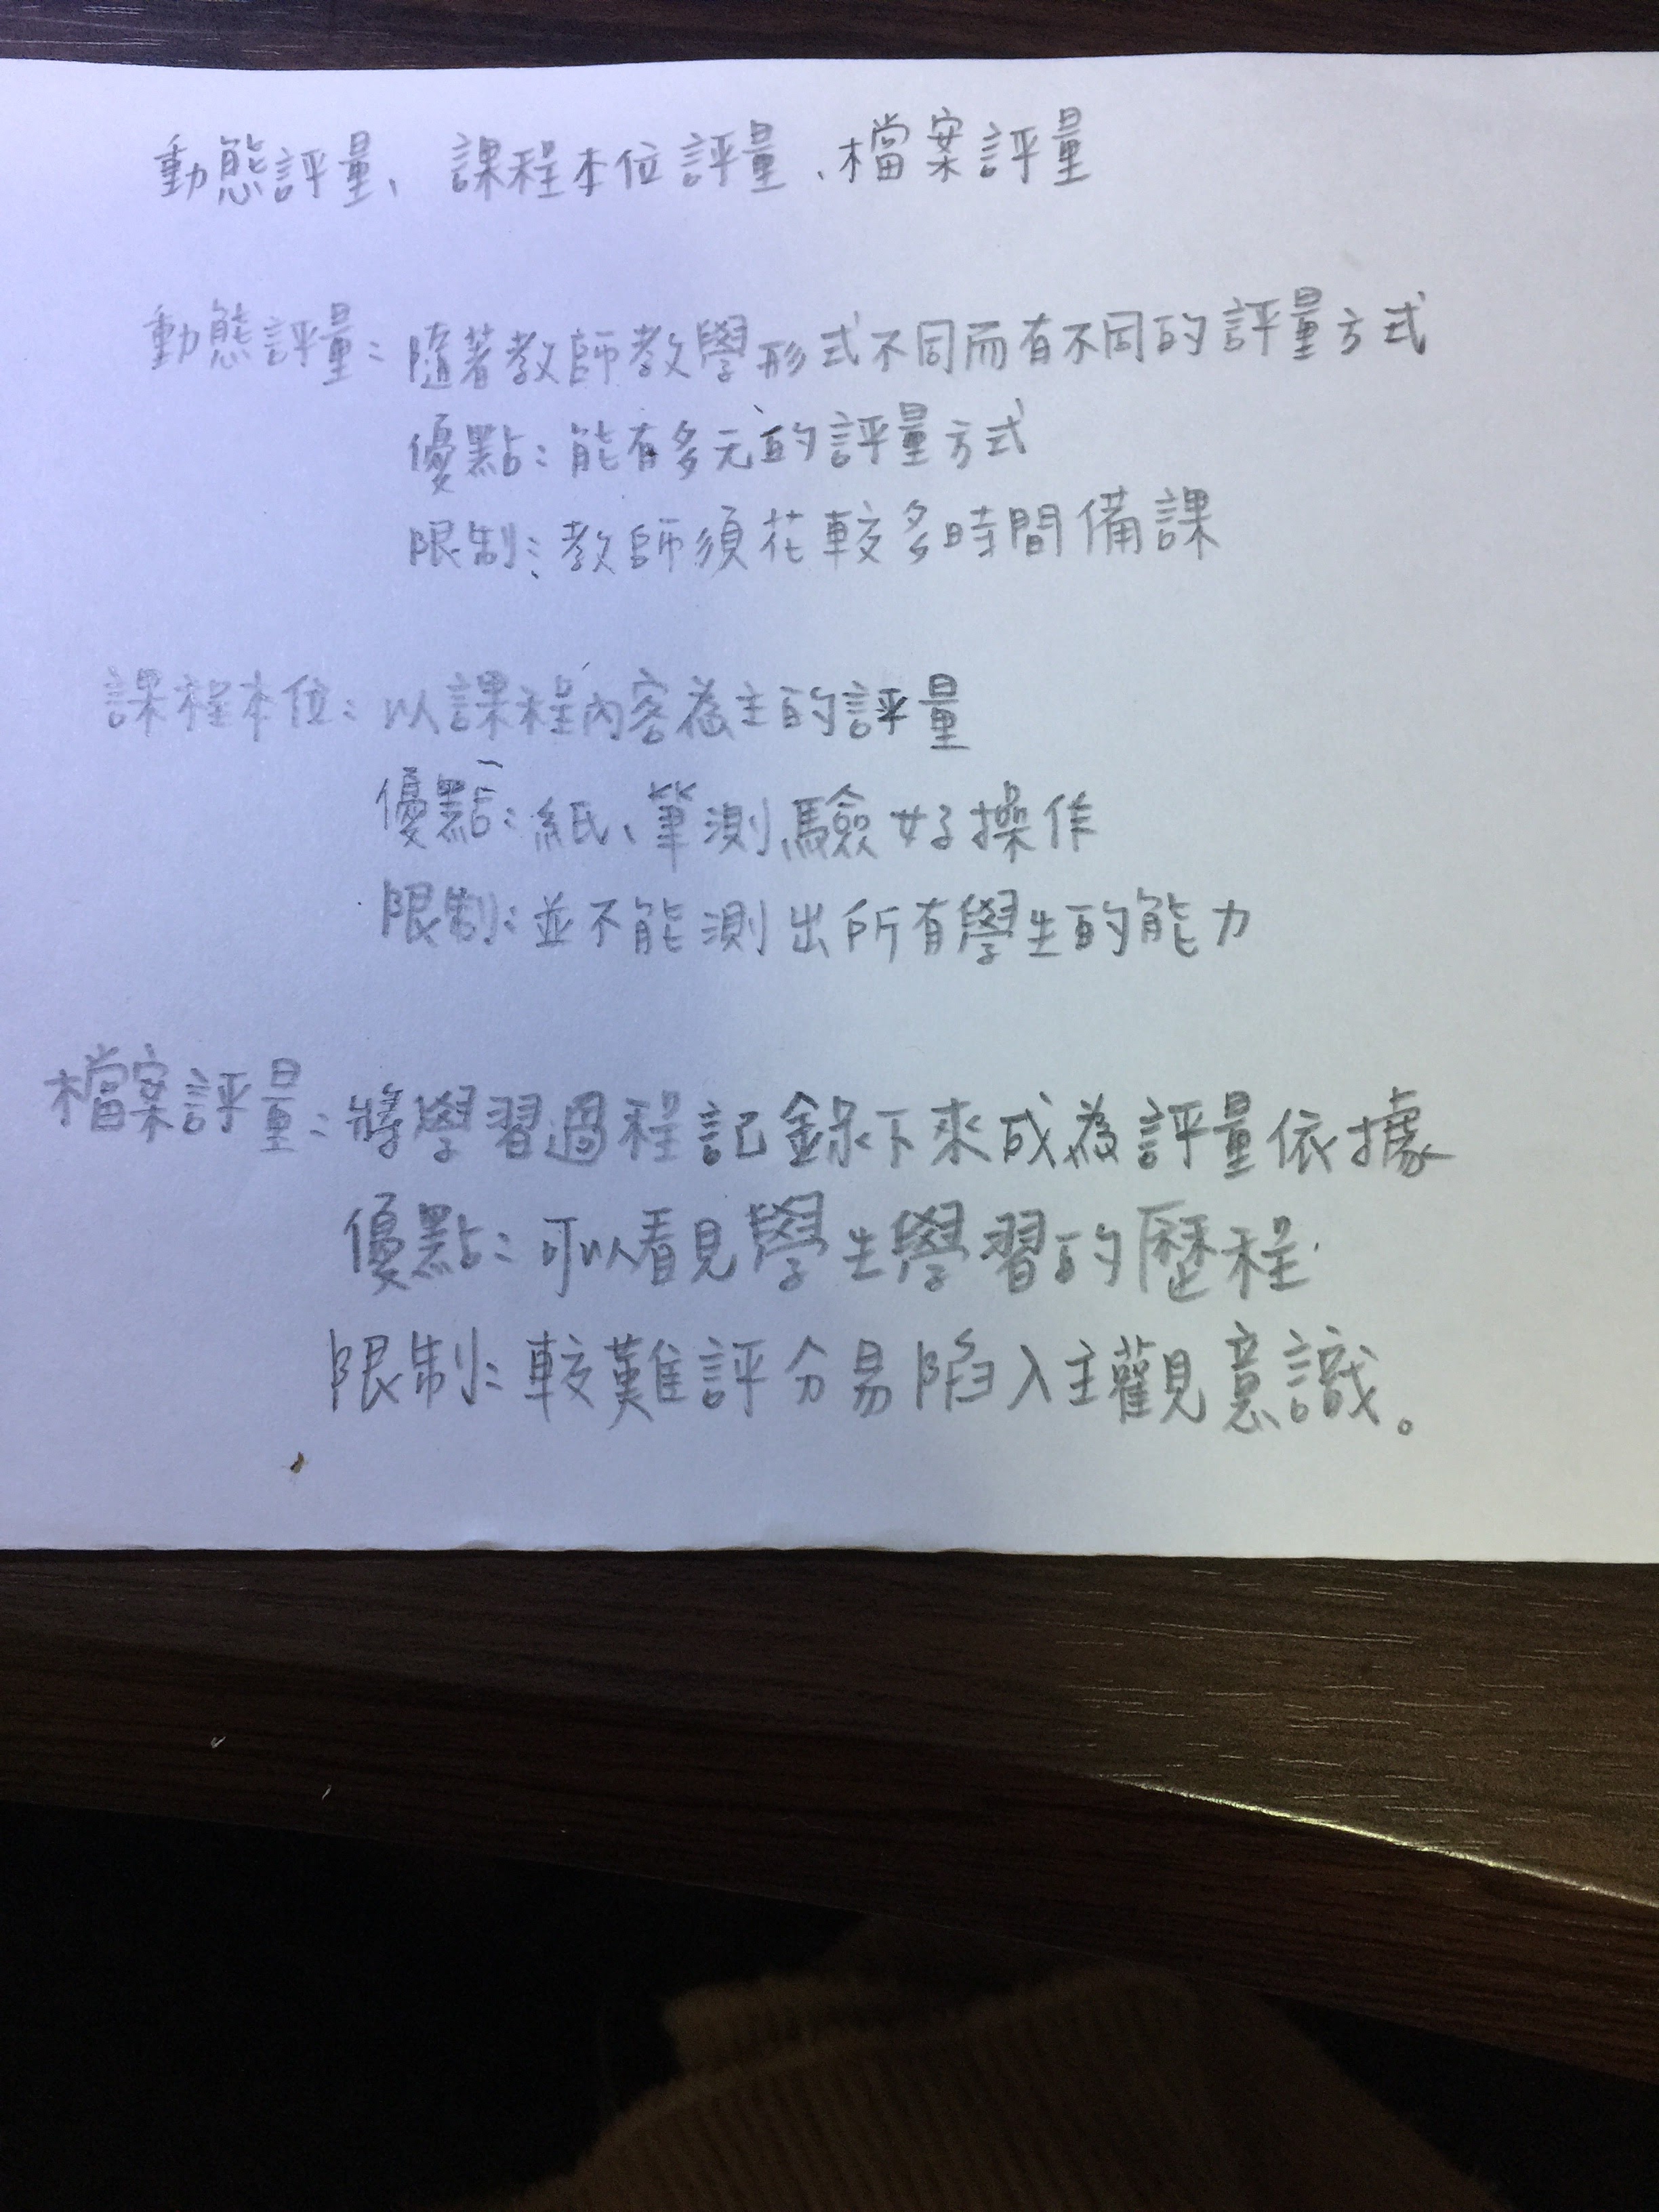 動態評量、課程本位評量、檔案評量
動態評量：隨著教師教學形式不同而有不同的評量方式
優點：能有多元的評量方式
限制：教師須花較多時間備課
課程本位：以課程內容為主的評量
優點：紙、筆測驗好操作
限制：並不能測出所有學生的能力
檔案評量：將學習過程記錄下來成為評量依據
優點：可以看見學生學習的歷程
限制：較難評分易陷入主觀意識。